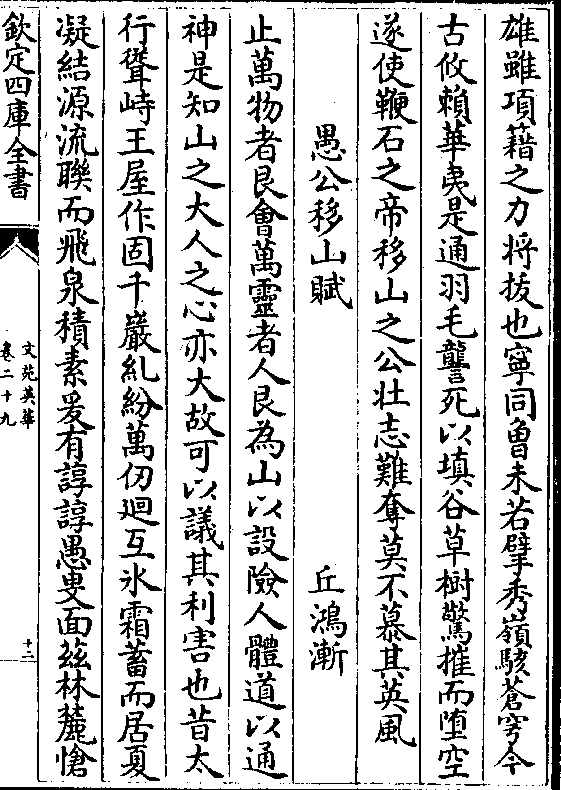 雄雖項藉之力將拔也寧同魯未若擘秀嶺駭蒼穹今
古攸賴華夷是通羽毛讋死以填谷草樹驚摧而堕空
遂使鞭石之帝移山之公壯志難奪莫不慕其英風
愚公移山賦 丘鴻漸
止萬物者艮會萬靈者人艮為山以設險人體道以通
神是知山之大人之心亦大故可以議其利害也昔太
行聳峙王屋作固千巖糺紛萬仞迴互氷霜蓄而居夏
凝結源流聮而飛泉積素爰有諄諄愚叟面茲林麓愴
欽定四庫全書
文苑英華
卷二十九
十二